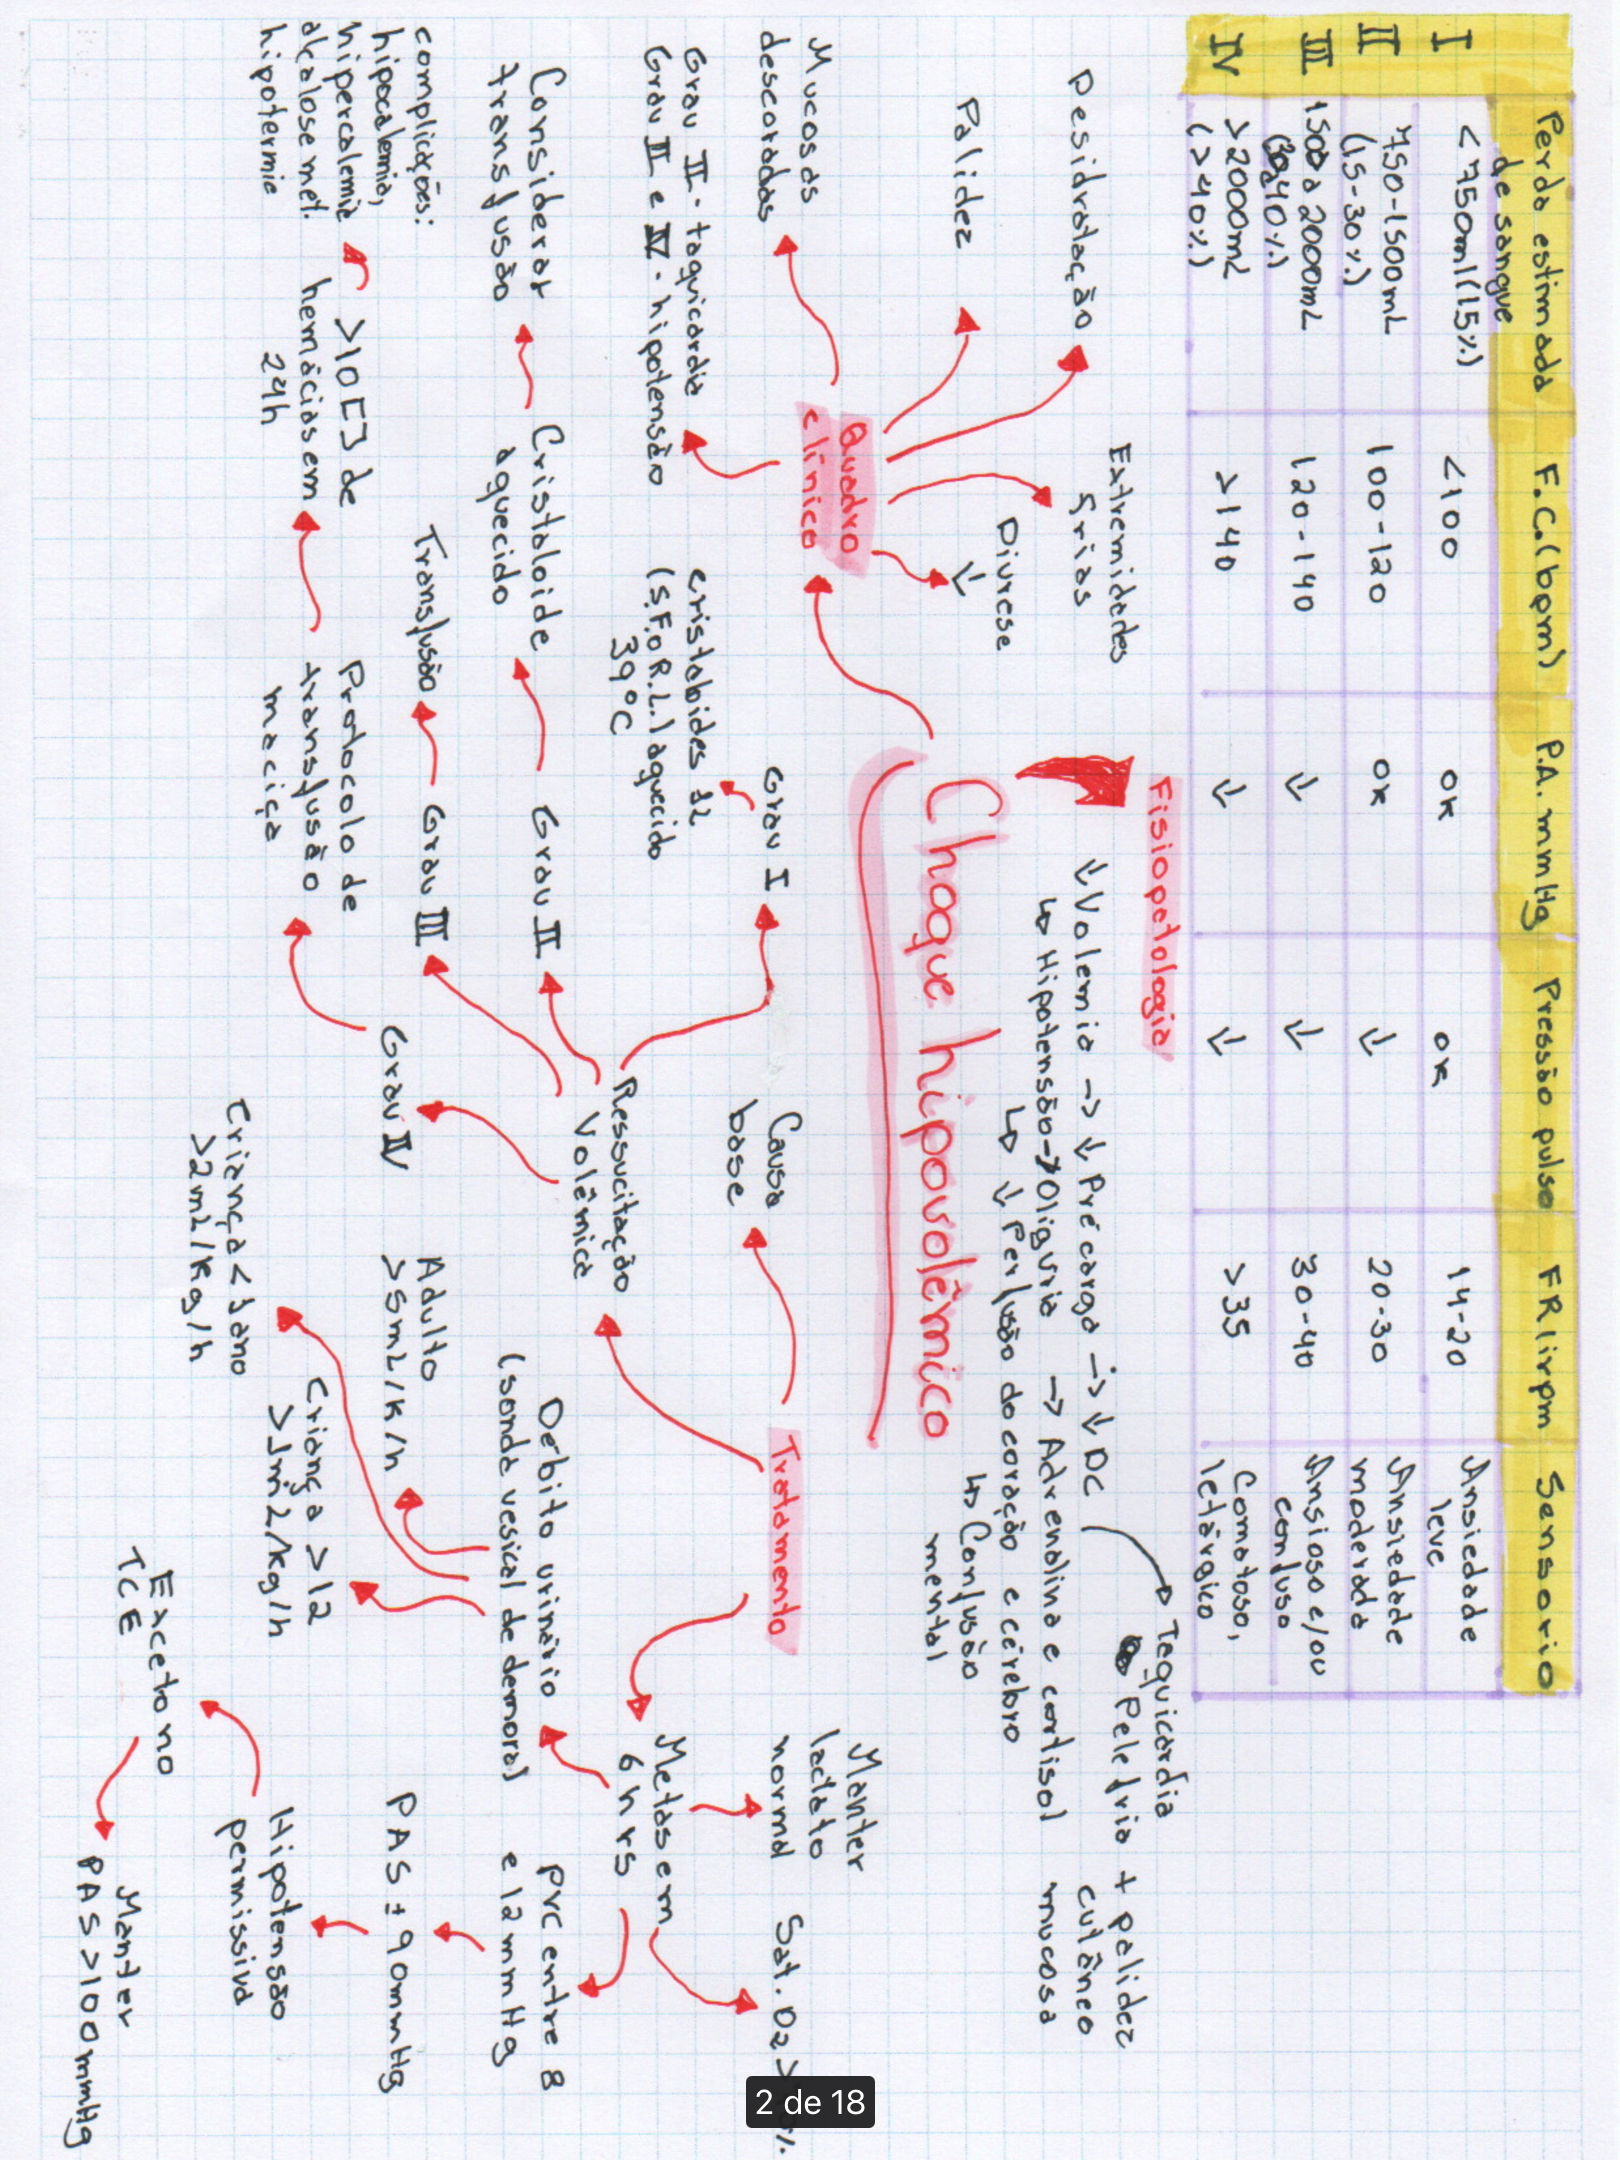 Perda estimada de sangue F.C.(bpm) P.A. mmHg Pressão pulso FR lirpm Sensorio
I <750ml (15%) <100 OK OK 14-20 Ansiedade leve
II 750-1500mL (15-30%) 100-120 OK ↓ 20-30 Ansiedade moderada
III 1500 a 2000mL (30a40%) 120-140 ↓ ↓ 30-40 Ansioso e/ou confuso
IV >2000mL (>40%) >140 ↓ ↓ >35 Comatoso, letárgico
Fisiopatologia
↓ Volemia → ↓ Pré carga → ↓ DC
Taquicardia
Pele fria + palidez
cutâneo
mucosa
↳ Hipotensão → Oliguria → Adrenalina e cortisol
↳ ↓ Perfusão do coração e cérebro
↳ Confusão
mental
Choque hipovolêmico
Quadro
clínico
Desidratação
Palidez
Mucosas
descoradas
Extremidades
frias
Diurese
↓
Grau II - taquicardia
Grau III e IV - hipotensão
Tratamento
Causa
base
Ressucitação
Volêmica
Grau I
cristaloides 1L
(S.F. o R.L.) aquecido
39°C
Grau II
Cristaloide
aquecido
Considerar
transfusão
Grau III
Transfusão
Grau IV
Protocolo de
transfusão
maciça
>10 [] de
hemácias em
24h
complicações:
hipocalemia,
hipercalemia
alcalose met.
hipotermia
Metas em
6 hrs
Manter
lactato
normal
Sat. O2 >
PVC entre 8
e 12 mmHg
PAS ± 90mmHg
Hipotensão
permissiva
Exceto no
TCE
Manter
PAS >100mmHg
Debito urinário
(sonda vesical de demora)
Adulto
>5mL/K/h
Criança >12
>1mL/kg/h
Criança < 1ano
>2mL/kg/h
2 de 18